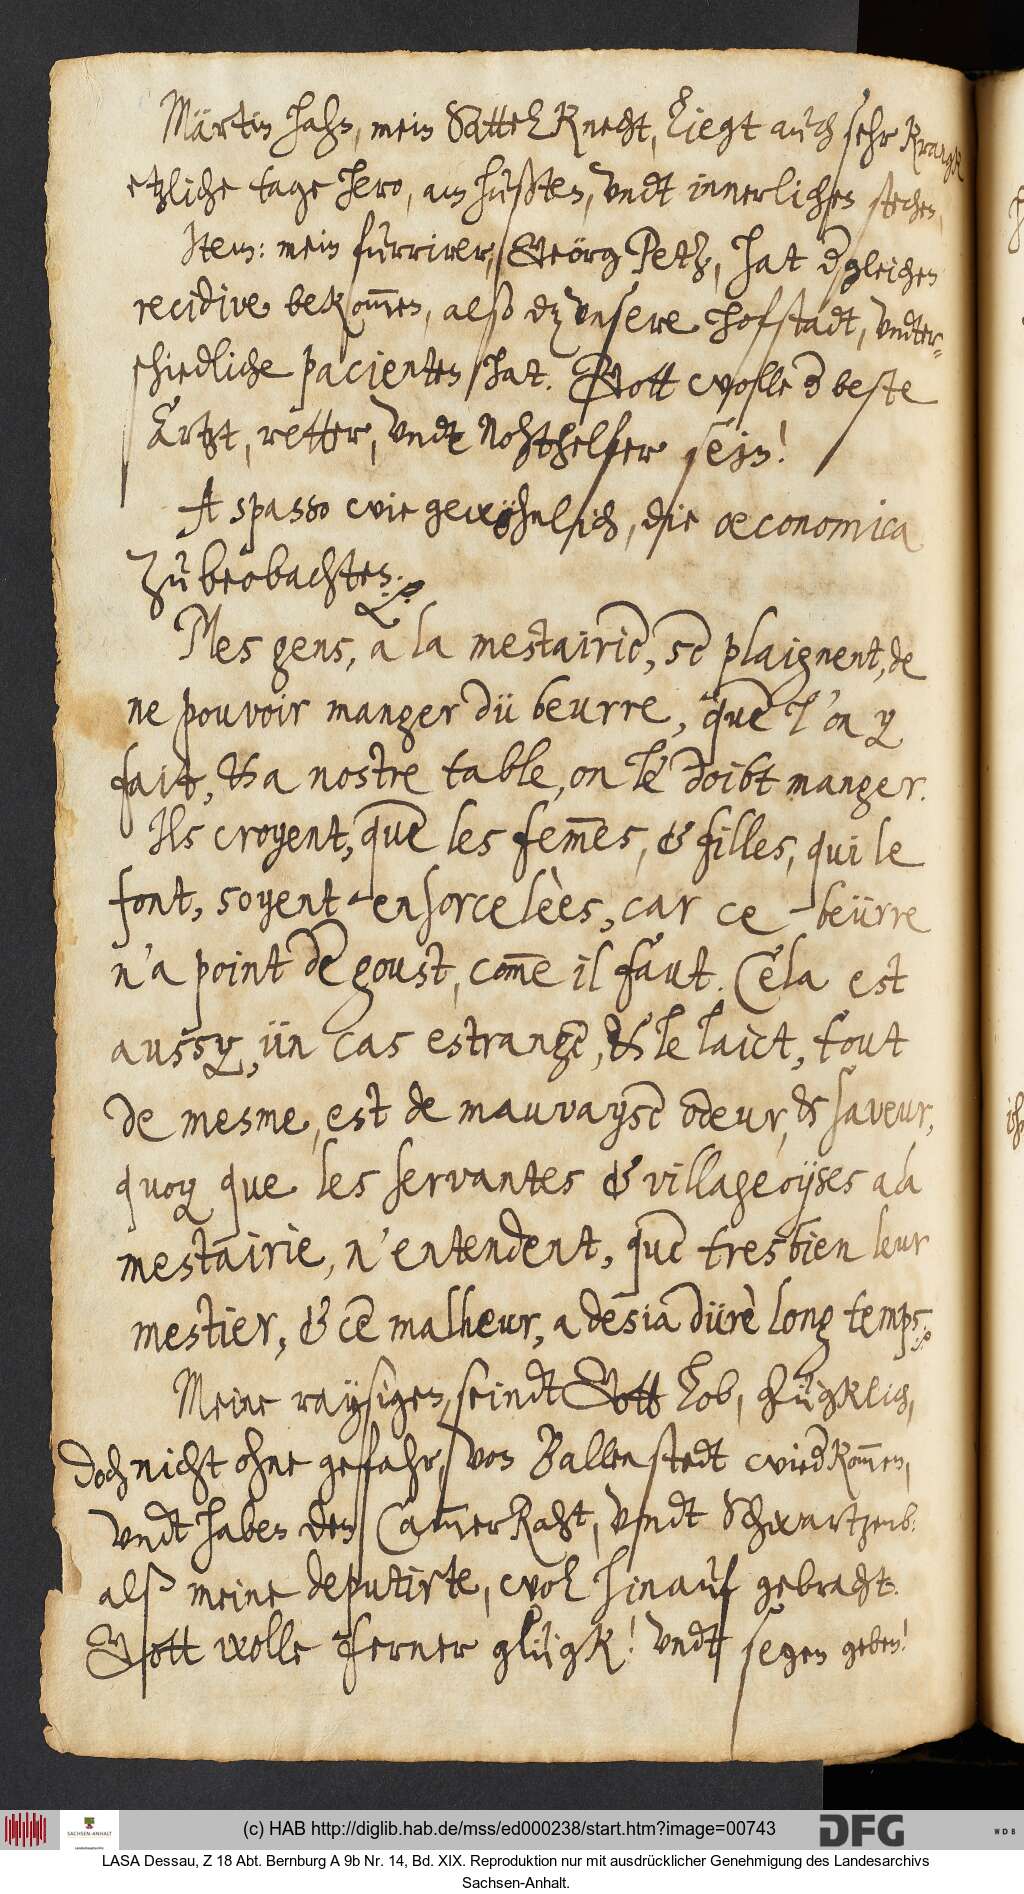 Märtin Jahn, mein SattelKnecht, liegt auch sehr Krangk
etzliche tage hero, am hußten, undt innerlichen stechen,
Item: mein furrirer, Geörg Petz, hat dergleichen
recidive bekom̅en, alß dz unsere hofstadt, undter¬
schiedliche pacienten hat. Gott wolle d beste
Artzt, retter, undt Nohthelfer sein!
A spasso wie gewöhnlich, die œconomica
zu beobachten. 
Mes gens, a la mestairie, se plaignent, de
ne pouvoir manger dü beurre, que l'on y
fait, & a nostre table, on le doibt manger.
Ils croyent, que les fem̅es, & filles, qui le
font, soyent ensorcelèes, car ce beürre
n'a point de goust, com̅e il faut. Cela est
aussy, ün cas estrange, & le laict, tout
de mesme, est de mauvayse odeur, & saveur,
quoy que les servantes & villageoyses a la
mestairie, n'entendent, que tresbien leur
mestier, & ce malheur, a desia dürè long temps.
Meine raysigen, seindt Gott lob, glügklich,
doch nicht ohne gefahr, von Ballenstedt wiedkom̅en,
undt haben den Cam̅erRaht, undt Schwartzenb:
alß meine deputirte, wol hinauf gebracht.
Gott wolle ferner glügk! undt segen geben!
(c) HAB http://diglib.hab.de/mss/ed000238/start.htm?image=00743
SACHSEN-ANHALT
DFG
WDB
LASA Dessau, Z 18 Abt. Bernburg A 9b Nr. 14, Bd. XIX. Reproduktion nur mit ausdrücklicher Genehmigung des Landesarchivs
Sachsen-Anhalt.